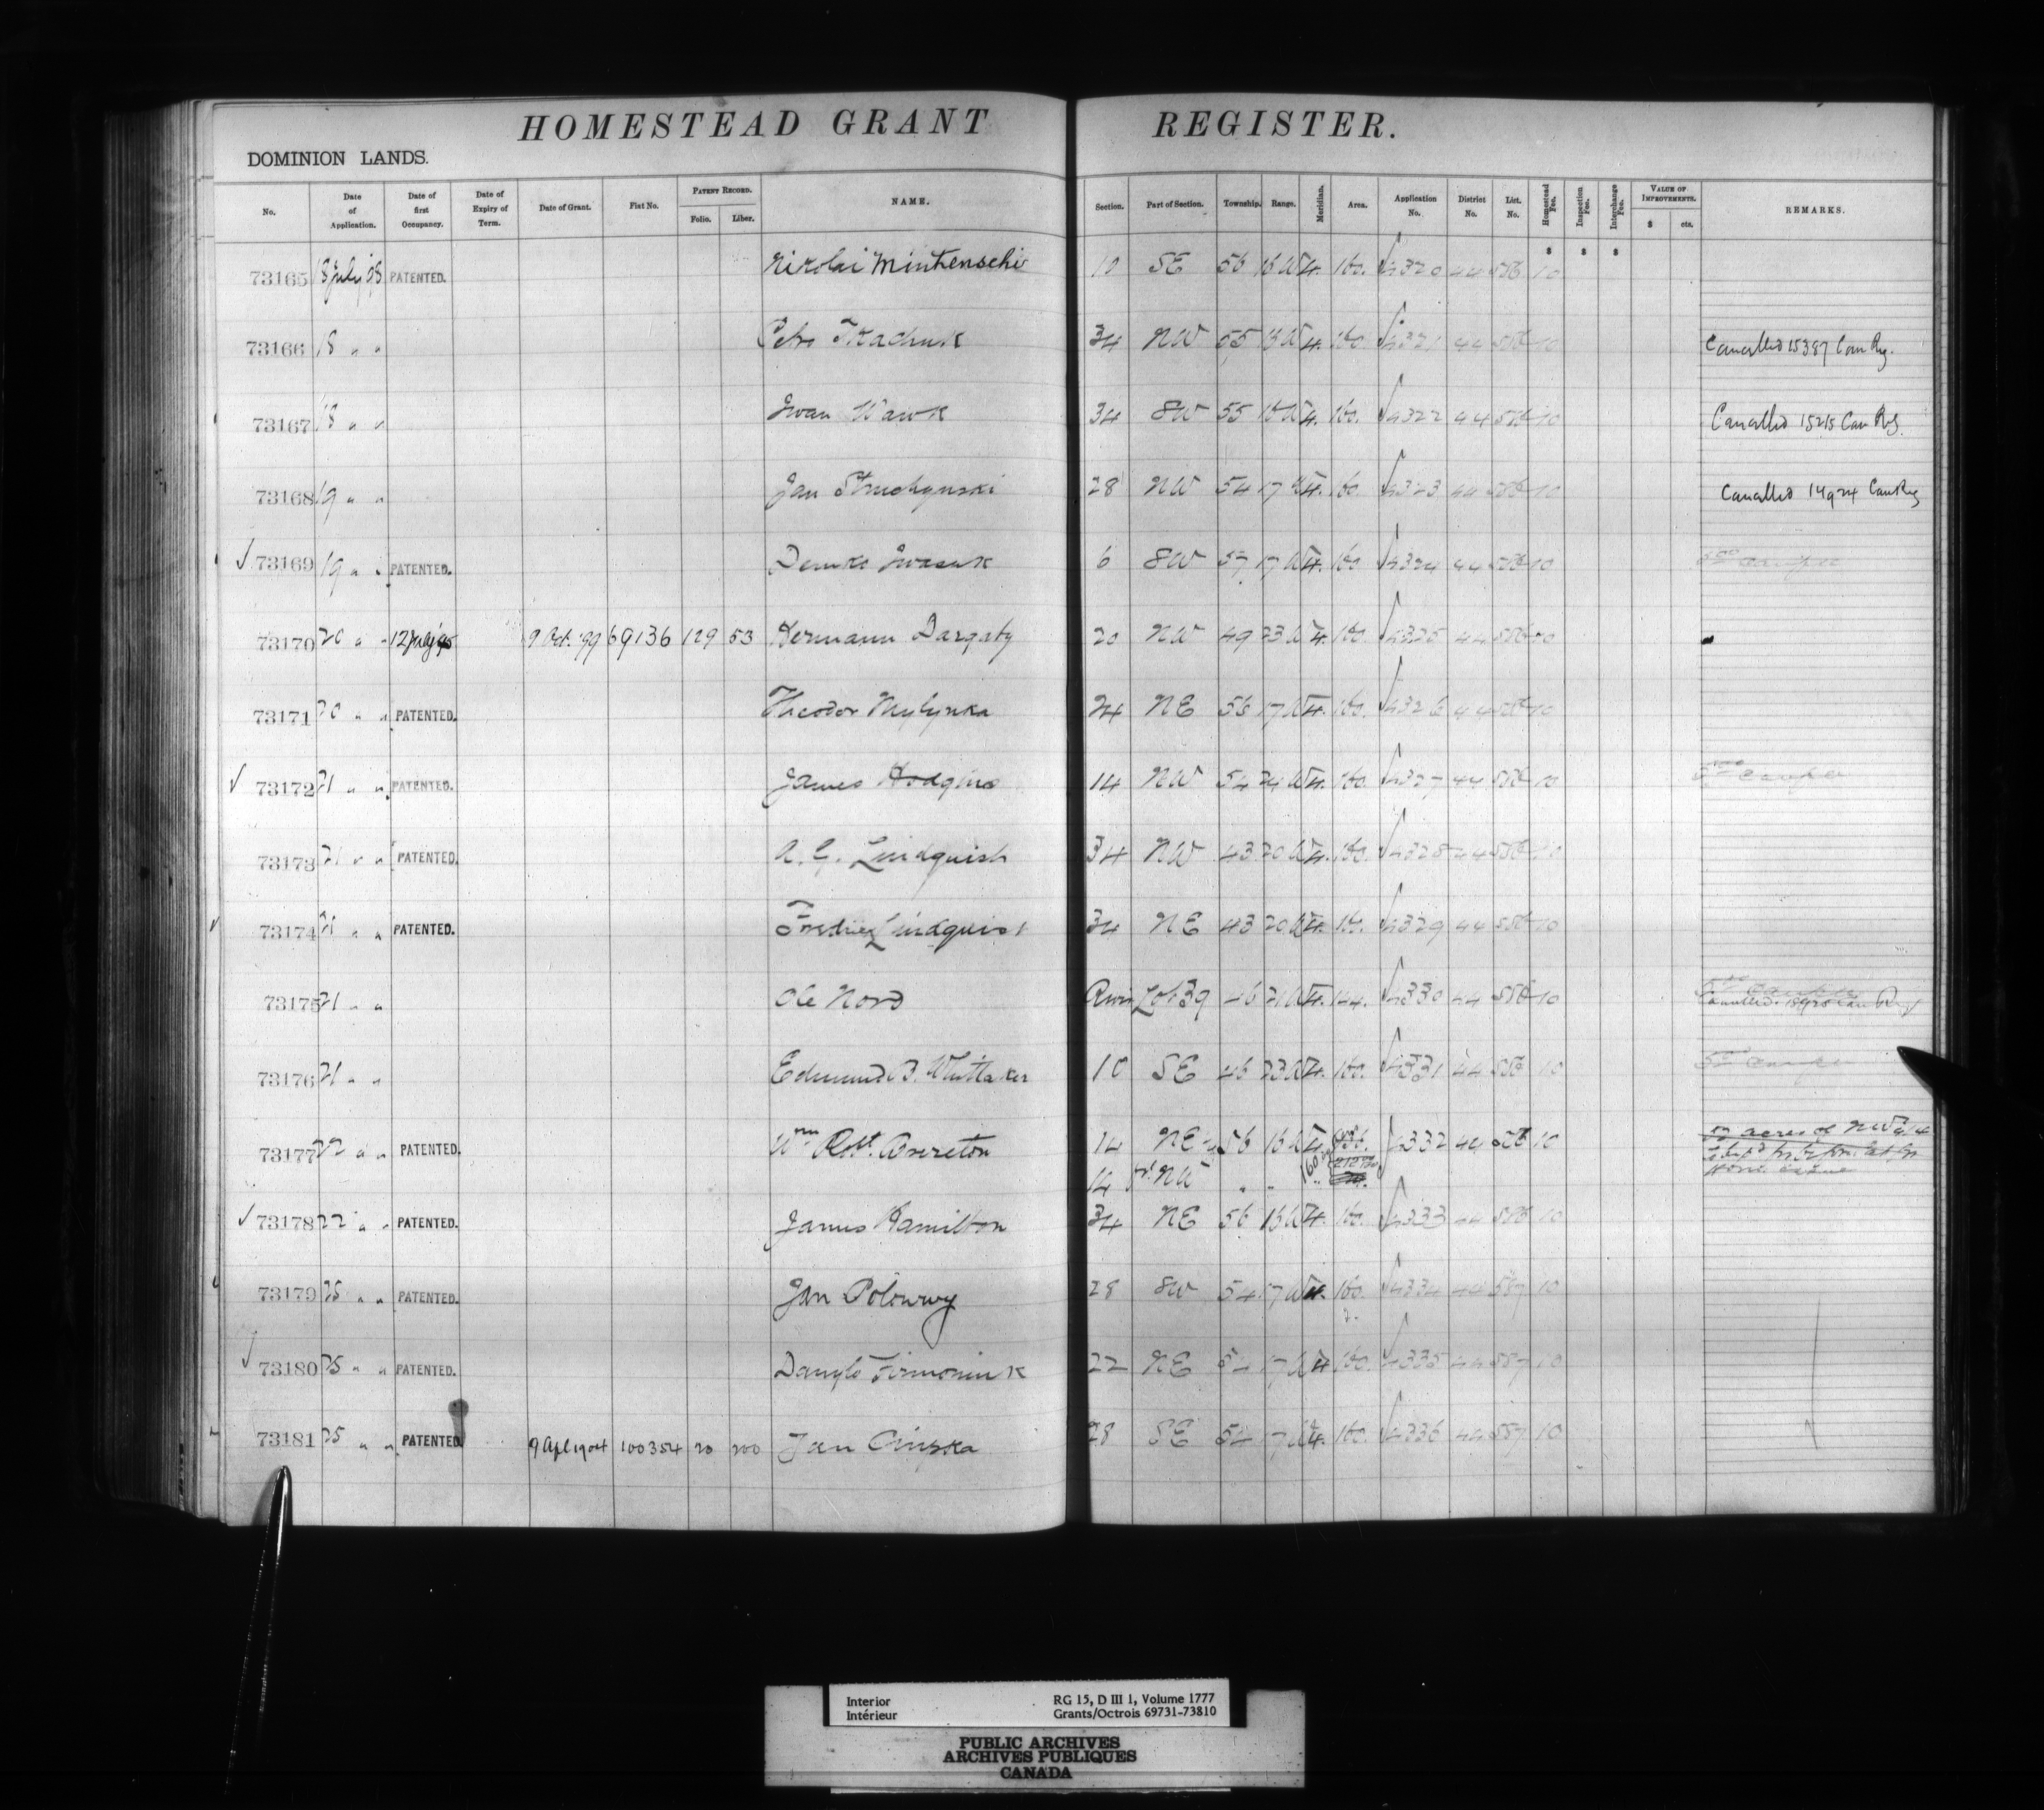 HOMESTEAD GRANT REGISTER.
DOMINION LANDS.
No. Date of Application. Date of first Occupancy. Date of Expiry of Term. Date of Grant. Fiat No. PATENT RECORD. Folio. Liber. NAME. Section. Part of Section. Township. Range. Meridian. Area. Application No. District No. List. No. Homestead Fee. Inspection Fee. Interchange Fee. VALUE OF IMPROVEMENTS. $ cts. REMARKS.
73165 18 July '98 PATENTED. Nikolai 10 SE 56 16 W 4. 160. 4320 44 556 10
73166 18 " " Petro Tkachuk 34 NW 55 18 W 4. 160. 4321 44 556 10 Cancelled 15387 Can Reg.
73167 18 " " Iwan Wawk 34 SW 55 18 W 4. 160. 4322 44 556 10 Cancelled 15215 Can Reg.
73168 19 " " Jan 28 NW 54 17 W 4. 160. 4323 44 556 10 Cancelled 14924 Can Reg
73169 19 " " PATENTED. Iwasuk 6 SW 57 17 W 4. 160 4324 44 556 10
73170 20 " " 12 July '95 9 Oct. '99 69136 129 53 Hermann Dargatz 20 NW 49 23 W 4. 160. 4325 44 556 10
73171 20 " " PATENTED. Theodor 24 NE 56 17 W 4. 160. 4326 44 556 10
73172 21 " " PATENTED. James Hodgins 14 NW 54 24 W 4. 160. 4327 44 556 10
73173 21 " " PATENTED. A. G. Lindquist 34 NW 43 20 W 4. 160. 4328 44 556 10
73174 21 " " PATENTED. Lindquist 34 NE 43 20 W 4. 160. 4329 44 556 10
73175 21 " " Ole Nord River Lot 39 46 21 W 4. 144. 4330 44 556 10
73176 21 " " Edmund B. Whittaker 10 SE 46 23 W 4. 160. 4331 44 556 10
73177 22 " " PATENTED. Wm Robt. Brereton 14 NE 56 W 4. 4332 44 556 10 acres of NW 1/4
14 pt. NW " " " 160
73178 22 " " PATENTED. James Hamilton 34 NE 56 W 4. 160. 4333 44 556 10
73179 25 " " PATENTED. Jan Polowy 28 SW 54 17 W 4. 160. 4334 44 557 10
73180 25 " " PATENTED. Danylo 22 NE 54 17 W 4 160. 4335 44 557 10
73181 25 " " PATENTED. 9 Apl 1904 100354 20 200 Jan 28 SE 54 17 W 4. 160. 4336 44 557 10
Interior RG 15, D III 1, Volume 1777
Intérieur Grants/Octrois 69731-73810
PUBLIC ARCHIVES
ARCHIVES PUBLIQUES
CANADA